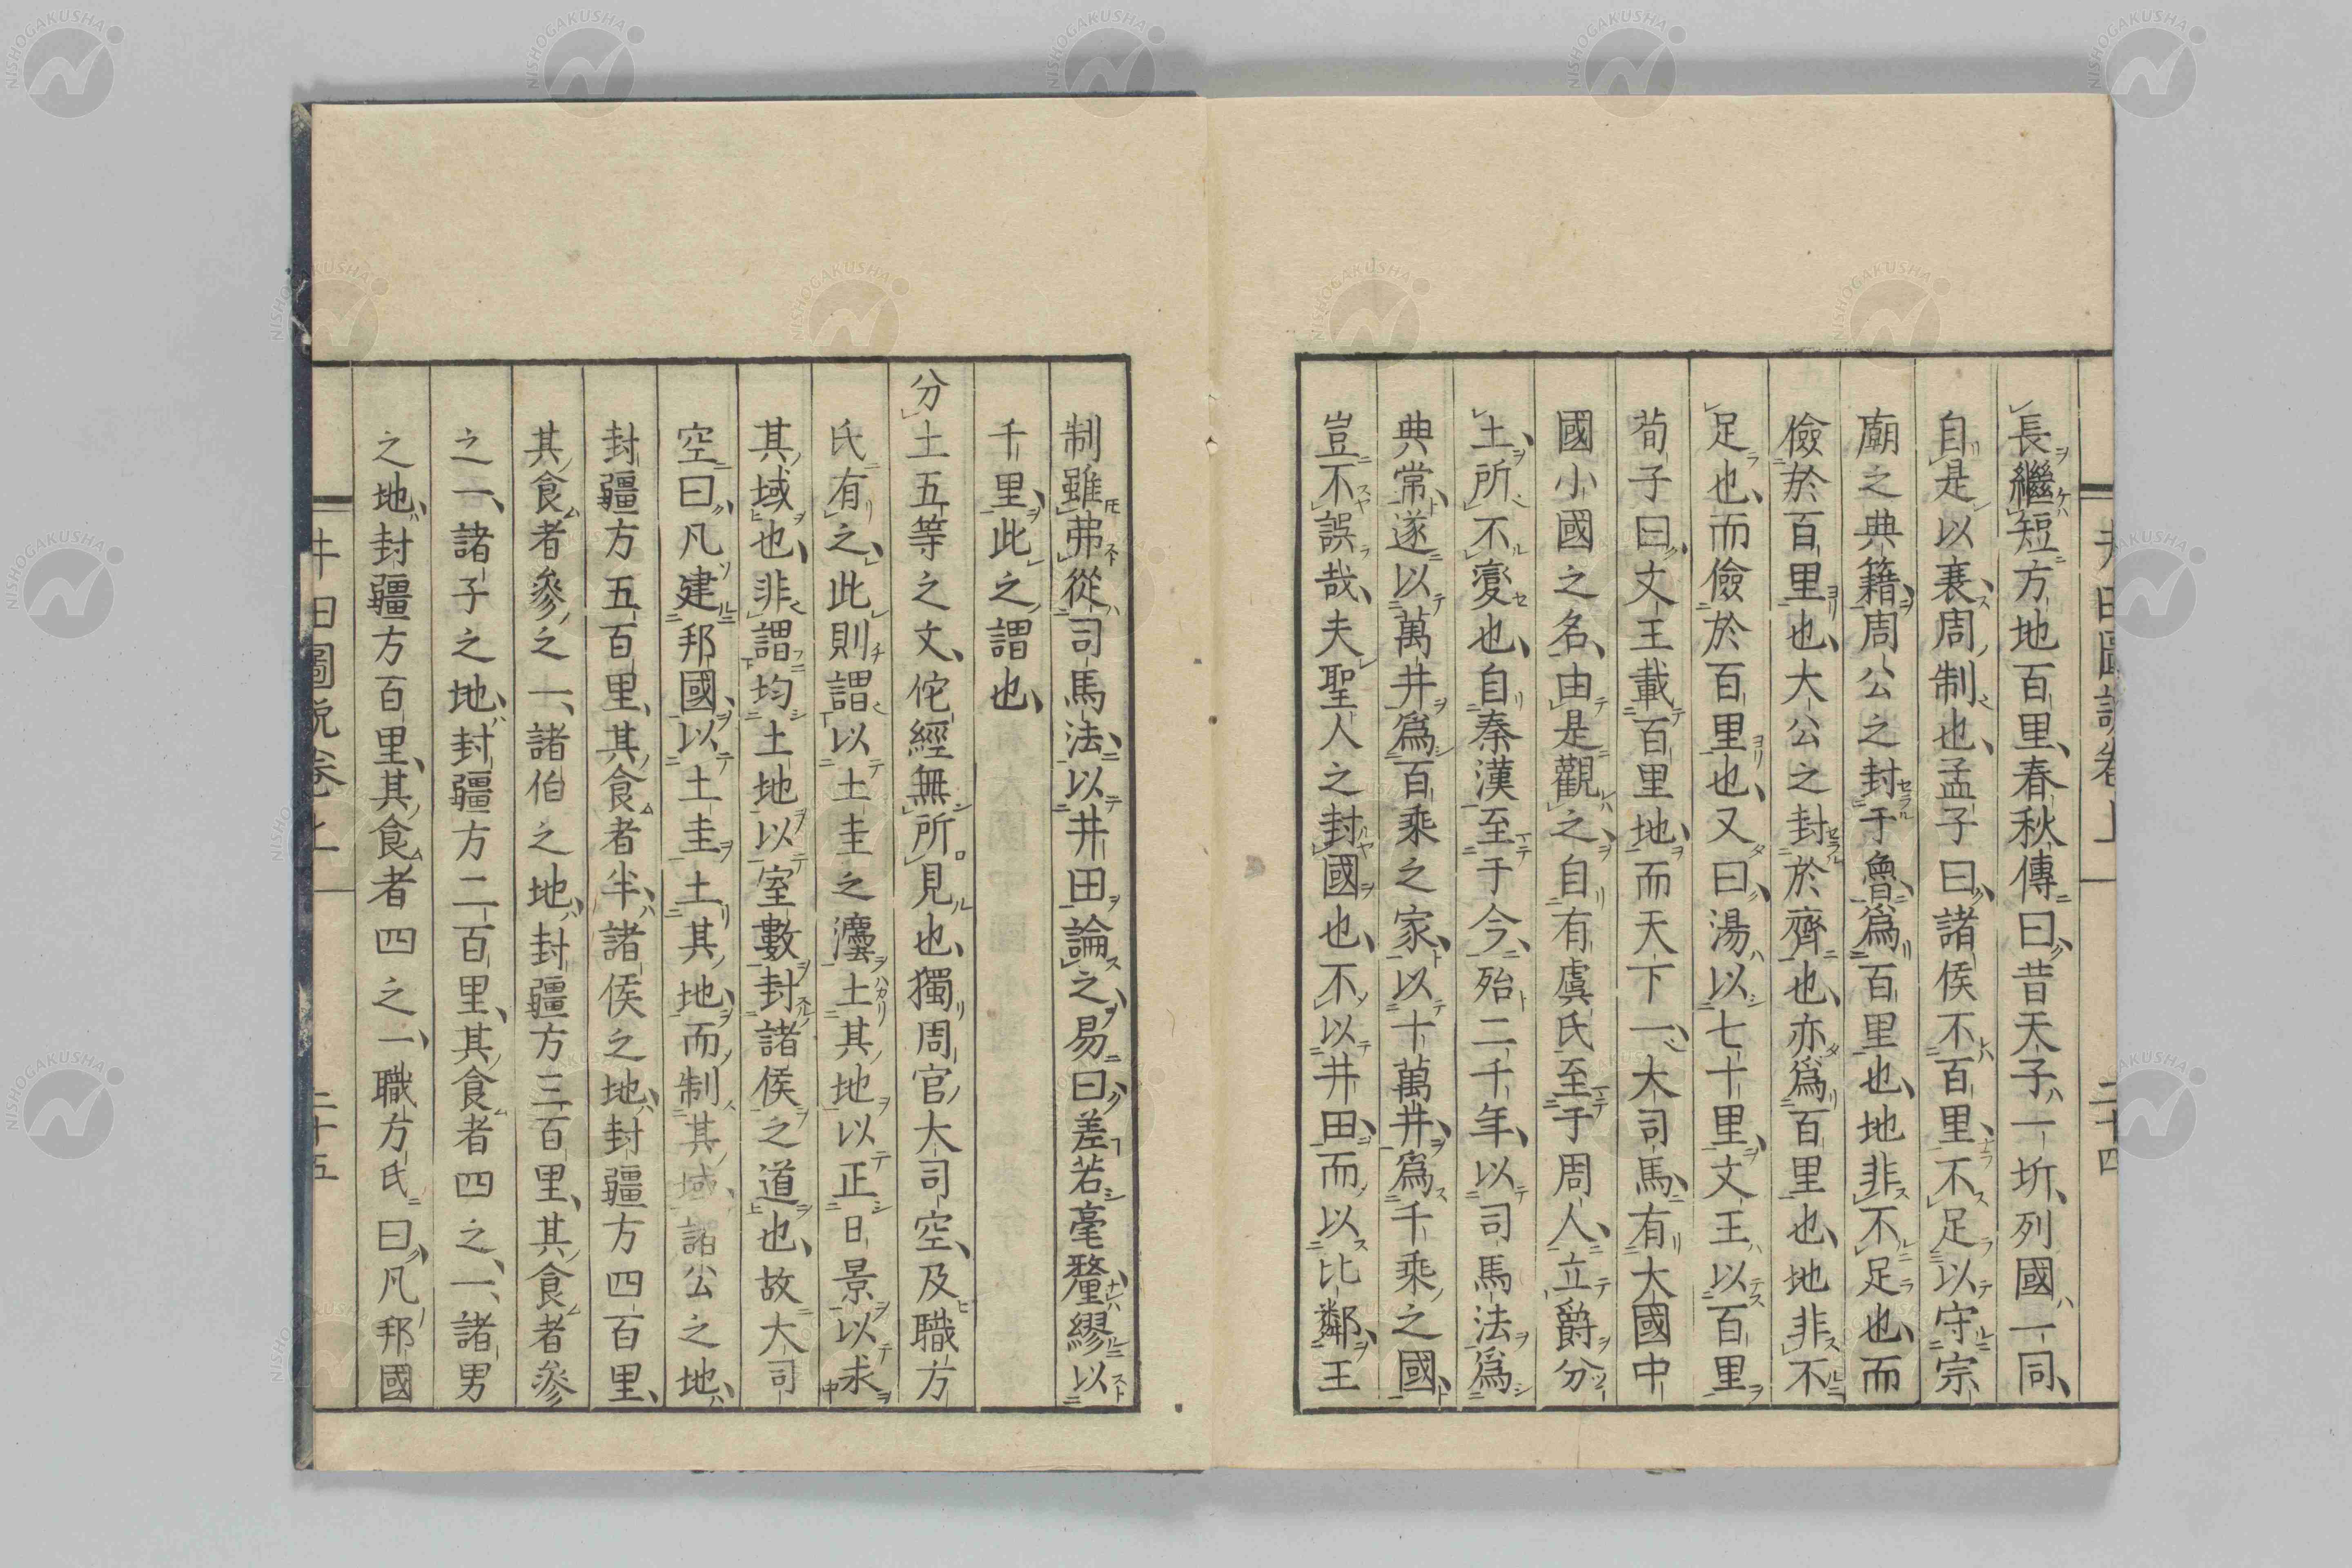 長繼短方地百里、春秋傳曰、昔天子一圻、列國一同、
自是以衰、周制也、孟子曰、諸侯不百里、不足以守宗
廟之典籍、周公之封于魯、爲百里也、地非不足也、而
儉於百里也、大公之封於齊也、亦爲百里也、地非不
足也、而儉於百里也、又曰、湯以七十里、文王以百里
荀子曰、文王載百里地、而天下一、大司馬、有大國中
國小國之名、由是觀之、自有虞氏至于周人、立爵分
土、所不變也、自秦漢至于今、殆二千年、以司馬法爲
典常、遂以萬井爲百乘之家、以十萬井、爲千乘之國、
豈不誤哉、夫聖人之封國也、不以井田、而以比鄰、王
制雖弗從司馬法、以井田論之、易曰、差若毫釐、繆以
千里、此之謂也、
分土五等之文、佗經無所見也、獨周官大司空、及職方
氏有之、此則謂以土圭之灋土其地以正日景以求
其域也、非謂均土地以室數封諸侯之道也、故大司
空曰、凡建邦國、以土圭土其地、而制其域、諸公之地、
封疆方五百里、其食者半、諸侯之地、封疆方四百里、
其食者參之一、諸伯之地、封疆方三百里、其食者參
之一、諸子之地、封疆方二百里、其食者四之一、諸男
之地、封疆方百里、其食者四之一、職方氏曰、凡邦國
井田圖説卷上
二十五
二十四